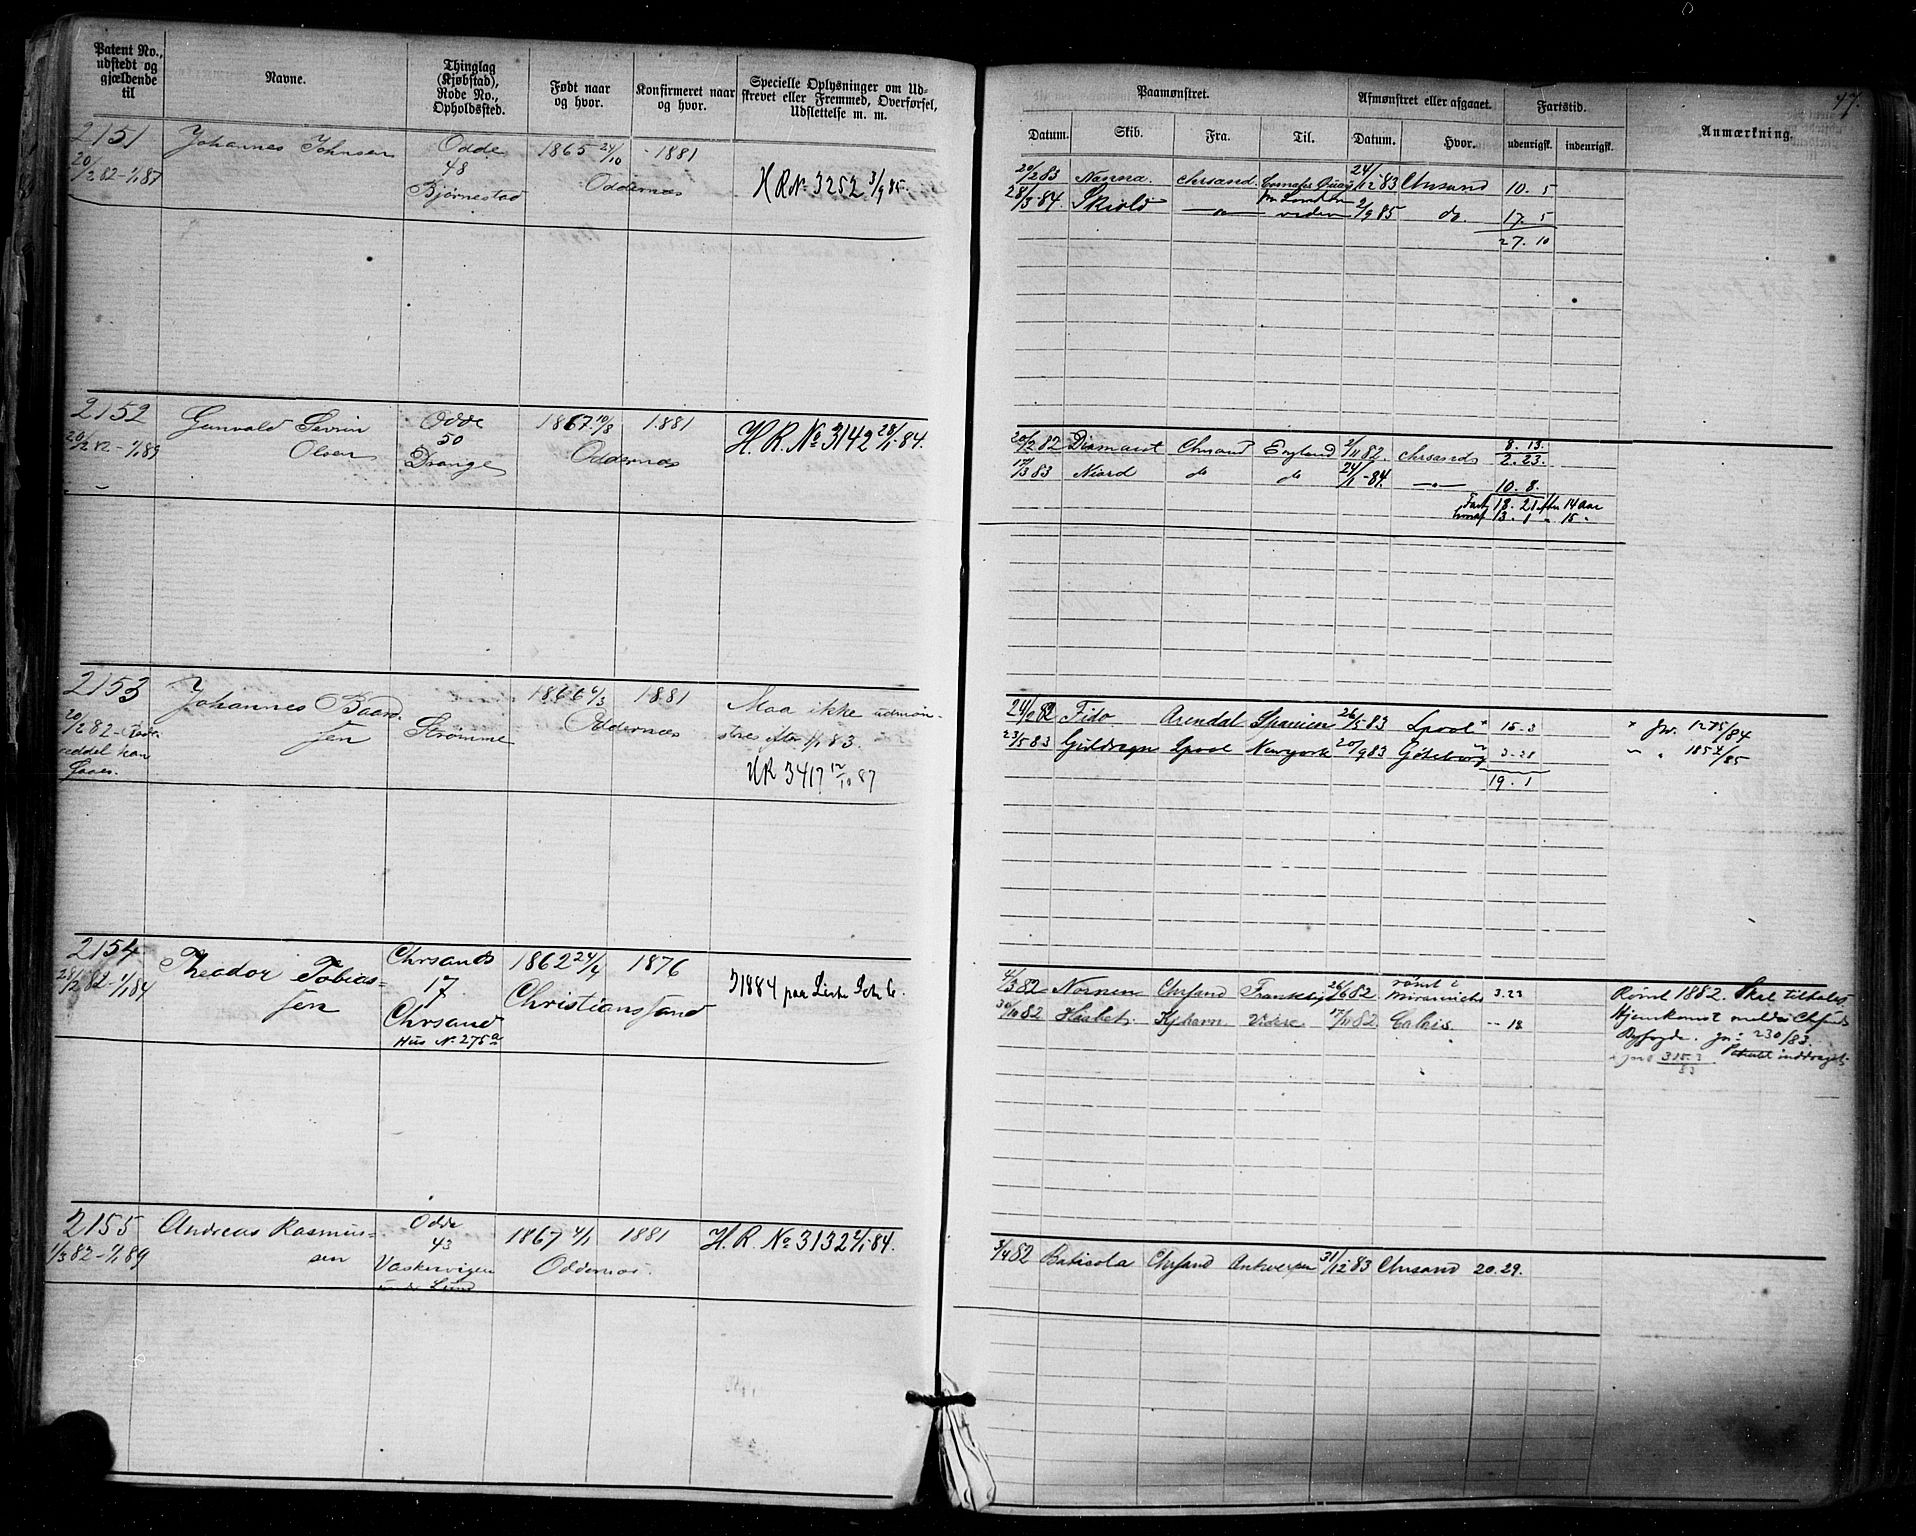 Patent No., udstedt og gjældende til
Navne.
Thinglag (Kjøbstad), Rode No., Opholdssted.
Født naar og hvor.
Konfirmeret naar og hvor.
Specielle Oplysninger om Udskrevet eller Fremmed, Overførsel, Udslettelse m. m.
2151 Johannes Johnsen Odde 1865 24/10 1881
20/2 82-1/1 87 48 Oddernæs H.R. No 3252 3/9 85.
Bjørnestad
2152 Gunvald Sevrin Odde 1867 10/8 1881 H. R. No 3142 28/1 84.
20/2 82-1/1 89 Olsen 50 Oddernæs
Drange
2153 Johannes Baard- 1866 6/3 1881 Maa ikke udmøn-
20/2 82 sen Strømme Oddernæs stres efter 1/1 83.
HR 3417 12/10 87
2154 Theodor Tobias- Chrsands 1862 24/4 1876
28/2 82-1/1 84 sen 17 Christianssand 1884 paa
Chrsand
Hus No. 275a
2155 Andreas Rasmus- Odde 1867 4/1 1881 H. R. No 3132 84.
1/3 82-1/1 89 sen 43 Oddernæs.
Vaskervigen
under Lund
47.
Paamønstret.
Afmønstret eller afgaaet.
Fartstid.
Anmærkning.
Datum. Skib. Fra. Til. Datum. Hvor. udenrigsk. indenrigsk.
20/2 83 Nanna. Chrsand. 24/12 83 Chrsand 10. 5
28/3 84. Skiold —"— videre 2/9 85 do. 17. 5
27. 10
20/2 82 Diamant Chrsand England 2/11 82. Chrsands 8. 13.
2. 23.
17/3 83 Niord do do 24/1 84. —"— 10. 8.
18. 21 efter 14 aar
13. 1 " 15 "
24/2 82 Fido Arendal Spanien 26/5 83 Lpool 15-3 Jr. 1275/84
23/5 83 Guldregn Lpool Newyork 20/9 83 Göteborg 3-28 1857/85
19. 1
4/3 82 Nornen Chrsand 26/6 82 rømt i Miramichi 3.23 Rømt 1882. Skal tiltales
30/10 82 Kjhavn Videre 17/11 82 Calais. -- 18 Hjemkomst meldes Chrsands
Byfogde. Jr: 230/83.
Patent inddraget.
3/4 82 Chrsand Antwerpen 31/12 83 Chrsand 20. 29.